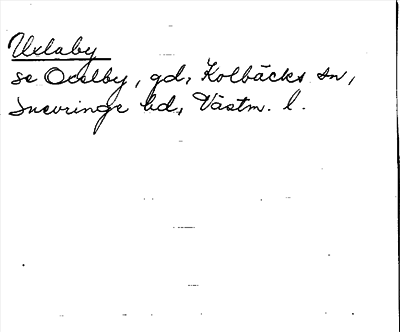 Uxlaby
se Oxelby, gd, Kolbäcks sn,
Snevringe hd, Västm. l.